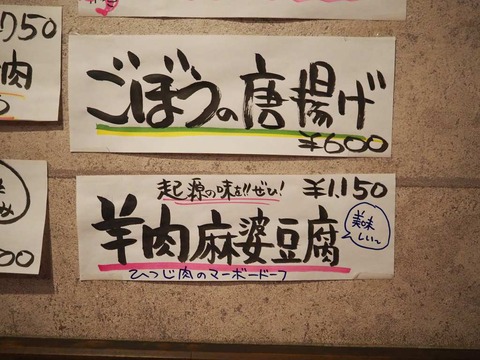 750
肉
ごぼうの唐揚げ
¥600
起源の味を!!ぜひ!
¥1,150
羊肉麻婆豆腐
美味
しい〜
ひつじ肉のマーボードーフ
00